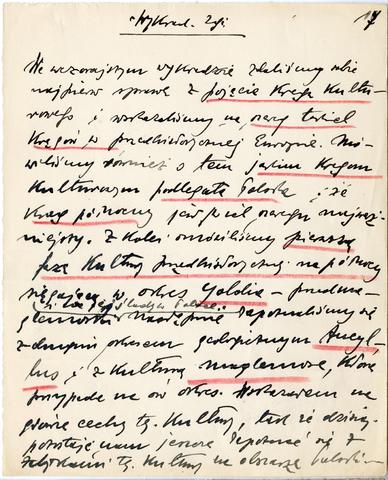 "Wykład. 2gi 17
We wczorajszym wykładzie zdaliśmy sobie
najpierw sprawę z pojęcia Kręgu Kultu-
rowego i wskazaliśmy na szereg takich
Kręgów w przedhistorycznej Europie. Mó-
wiliśmy również o tem jakim Kręgom
Kulturowym podlegała Polska i że
Krąg północny jest dla naszego najważ-
niejszy. Z kolei omówiliśmy pierwszą
fazę Kultury przedhistorycznej na północy
sięgającą w okres Goldia-
glemosku następnie zapoznaliśmy się
z drugim okresem geologicznym Ancyl-
lus i z Kulturą maglemose, która
przypada na ów okres. Wskazałem na
główne cechy tej Kultury, tak że dzisiaj
pozostaje nam jeszcze zapoznać się z
zabytkami tej Kultury na obszarze